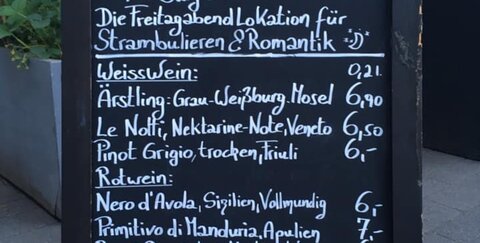 Die Freitagabend Lokation für
Strambulieren & Romantik :)
WeissWein: 0,2l
Ärstling-Grau-Weißburg. Mosel 6,90
Le Nolfi, Nektarine-Note, Veneto 6,50
Pinot Grigio, trocken, Friuli 6,-
Rotwein:
Nero d'Avola, Sizilien, Vollmundig 6,-
Primitivo di Manduria, Apulien 7,-